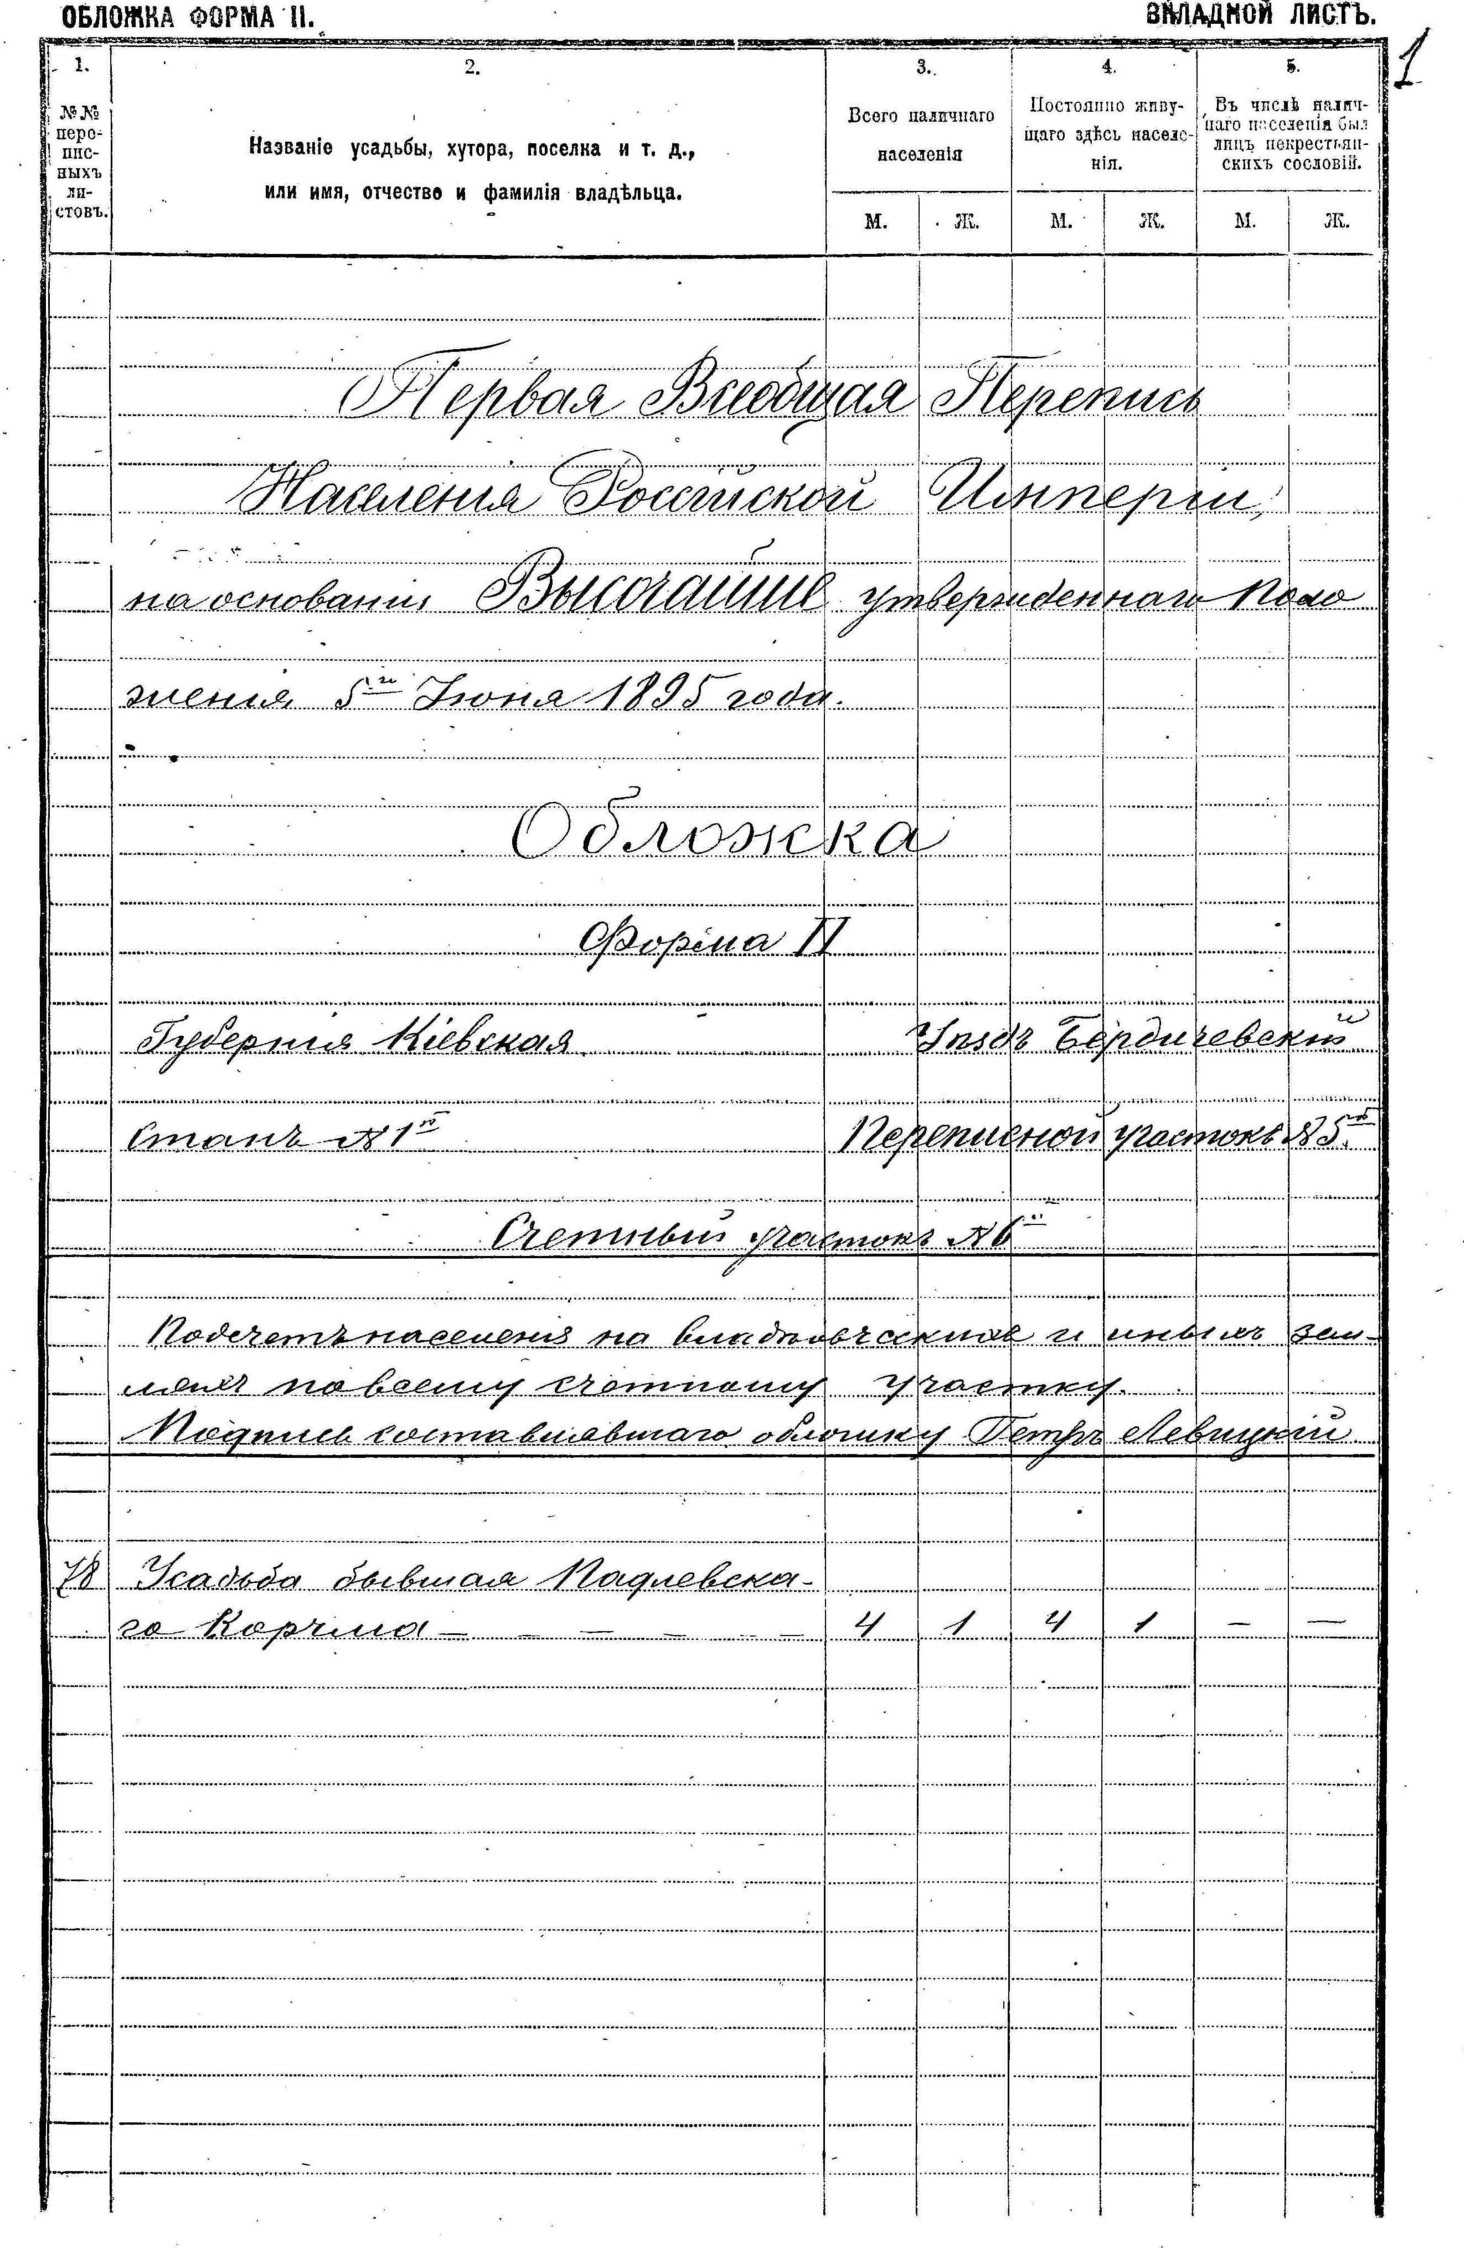 ОБЛОЖКА ФОРМА II.
ВКЛАДНОЙ ЛИСТЪ.
1
1.
2.
3.
4.
5.
№№
пере-
пис-
ныхъ
ли-
стовъ.
Названіе усадьбы, хутора, поселка и т. д.,
или имя, отчество и фамилія владѣльца.
Всего наличнаго
населенія
Постоянно живу-
щаго здѣсь населе-
нія.
Въ числѣ налич-
наго населенія был
лицъ некрестьян-
скихъ сословій.
М.
Ж.
М.
Ж.
М.
Ж.
Первая Всеобщая Перепись
Населенія Россійской Имперіи,
на основаніи Высочайше утвержденнаго Поло
женія 5го Іюня 1895 года.
Обложка
Форма II
Губернія Кіевская
Уѣздъ Бердичевскій
Станъ №1й
Переписной участокъ №5й
Счетный участокъ №6й
Подсчетъ населенія на владѣльческихъ и иныхъ зем-
ляхъ по всему счетному участку.
Подпись составлявшаго обложку Петръ Левицкій
78
Усадьба бывшая Падлевска-
го Корчма — — — — — —
4
1
4
1
—
—